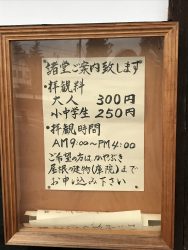 諸堂ご案内致します
・拝観料
大人 300円
小中学生 250円
・拝観時間
AM9:00～PM4:00
ご希望の方は かやぶき
屋根の建物(庫院)まで
お申し込み下さい